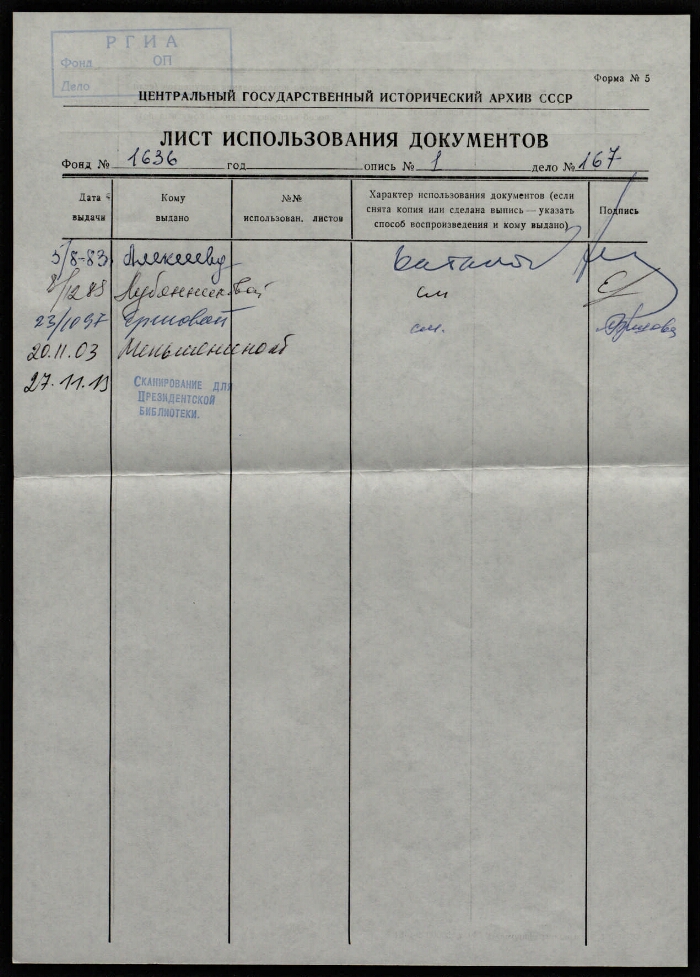 РГИА
Фонд ОП
Дело
Форма № 5
ЦЕНТРАЛЬНЫЙ ГОСУДАРСТВЕННЫЙ ИСТОРИЧЕСКИЙ АРХИВ СССР
ЛИСТ ИСПОЛЬЗОВАНИЯ ДОКУМЕНТОВ
Фонд № 1636 год опись № 1 дело № 167
Дата выдачи
Кому выдано
№№ использован. листов
Характер использования документов (если
снята копия или сделана выпись — указать
способ воспроизведения и кому выдано)
Подпись
5/8-83 Алексееву
см
23/10 97 Ершовой см.
20.11.03 Меньшениной
27.11.13 Сканирование для
Президентской
библиотеки.